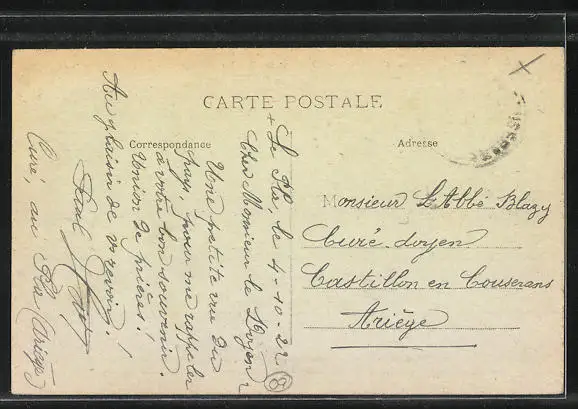 CARTE POSTALE
Correspondance
Adresse
+ Le Pla, le 4-10-22
Cher Monsieur le Doyen,
Une petite vue du
pays, pour me rappeler
à votre bon souvenir.
Union de prières!
Au plaisir de vs revoir!
Paul
Curé, au Pla (Ariège)
8
Monsieur L'Abbé Blazy
Curé-doyen
Castillon en Couserans
Ariège